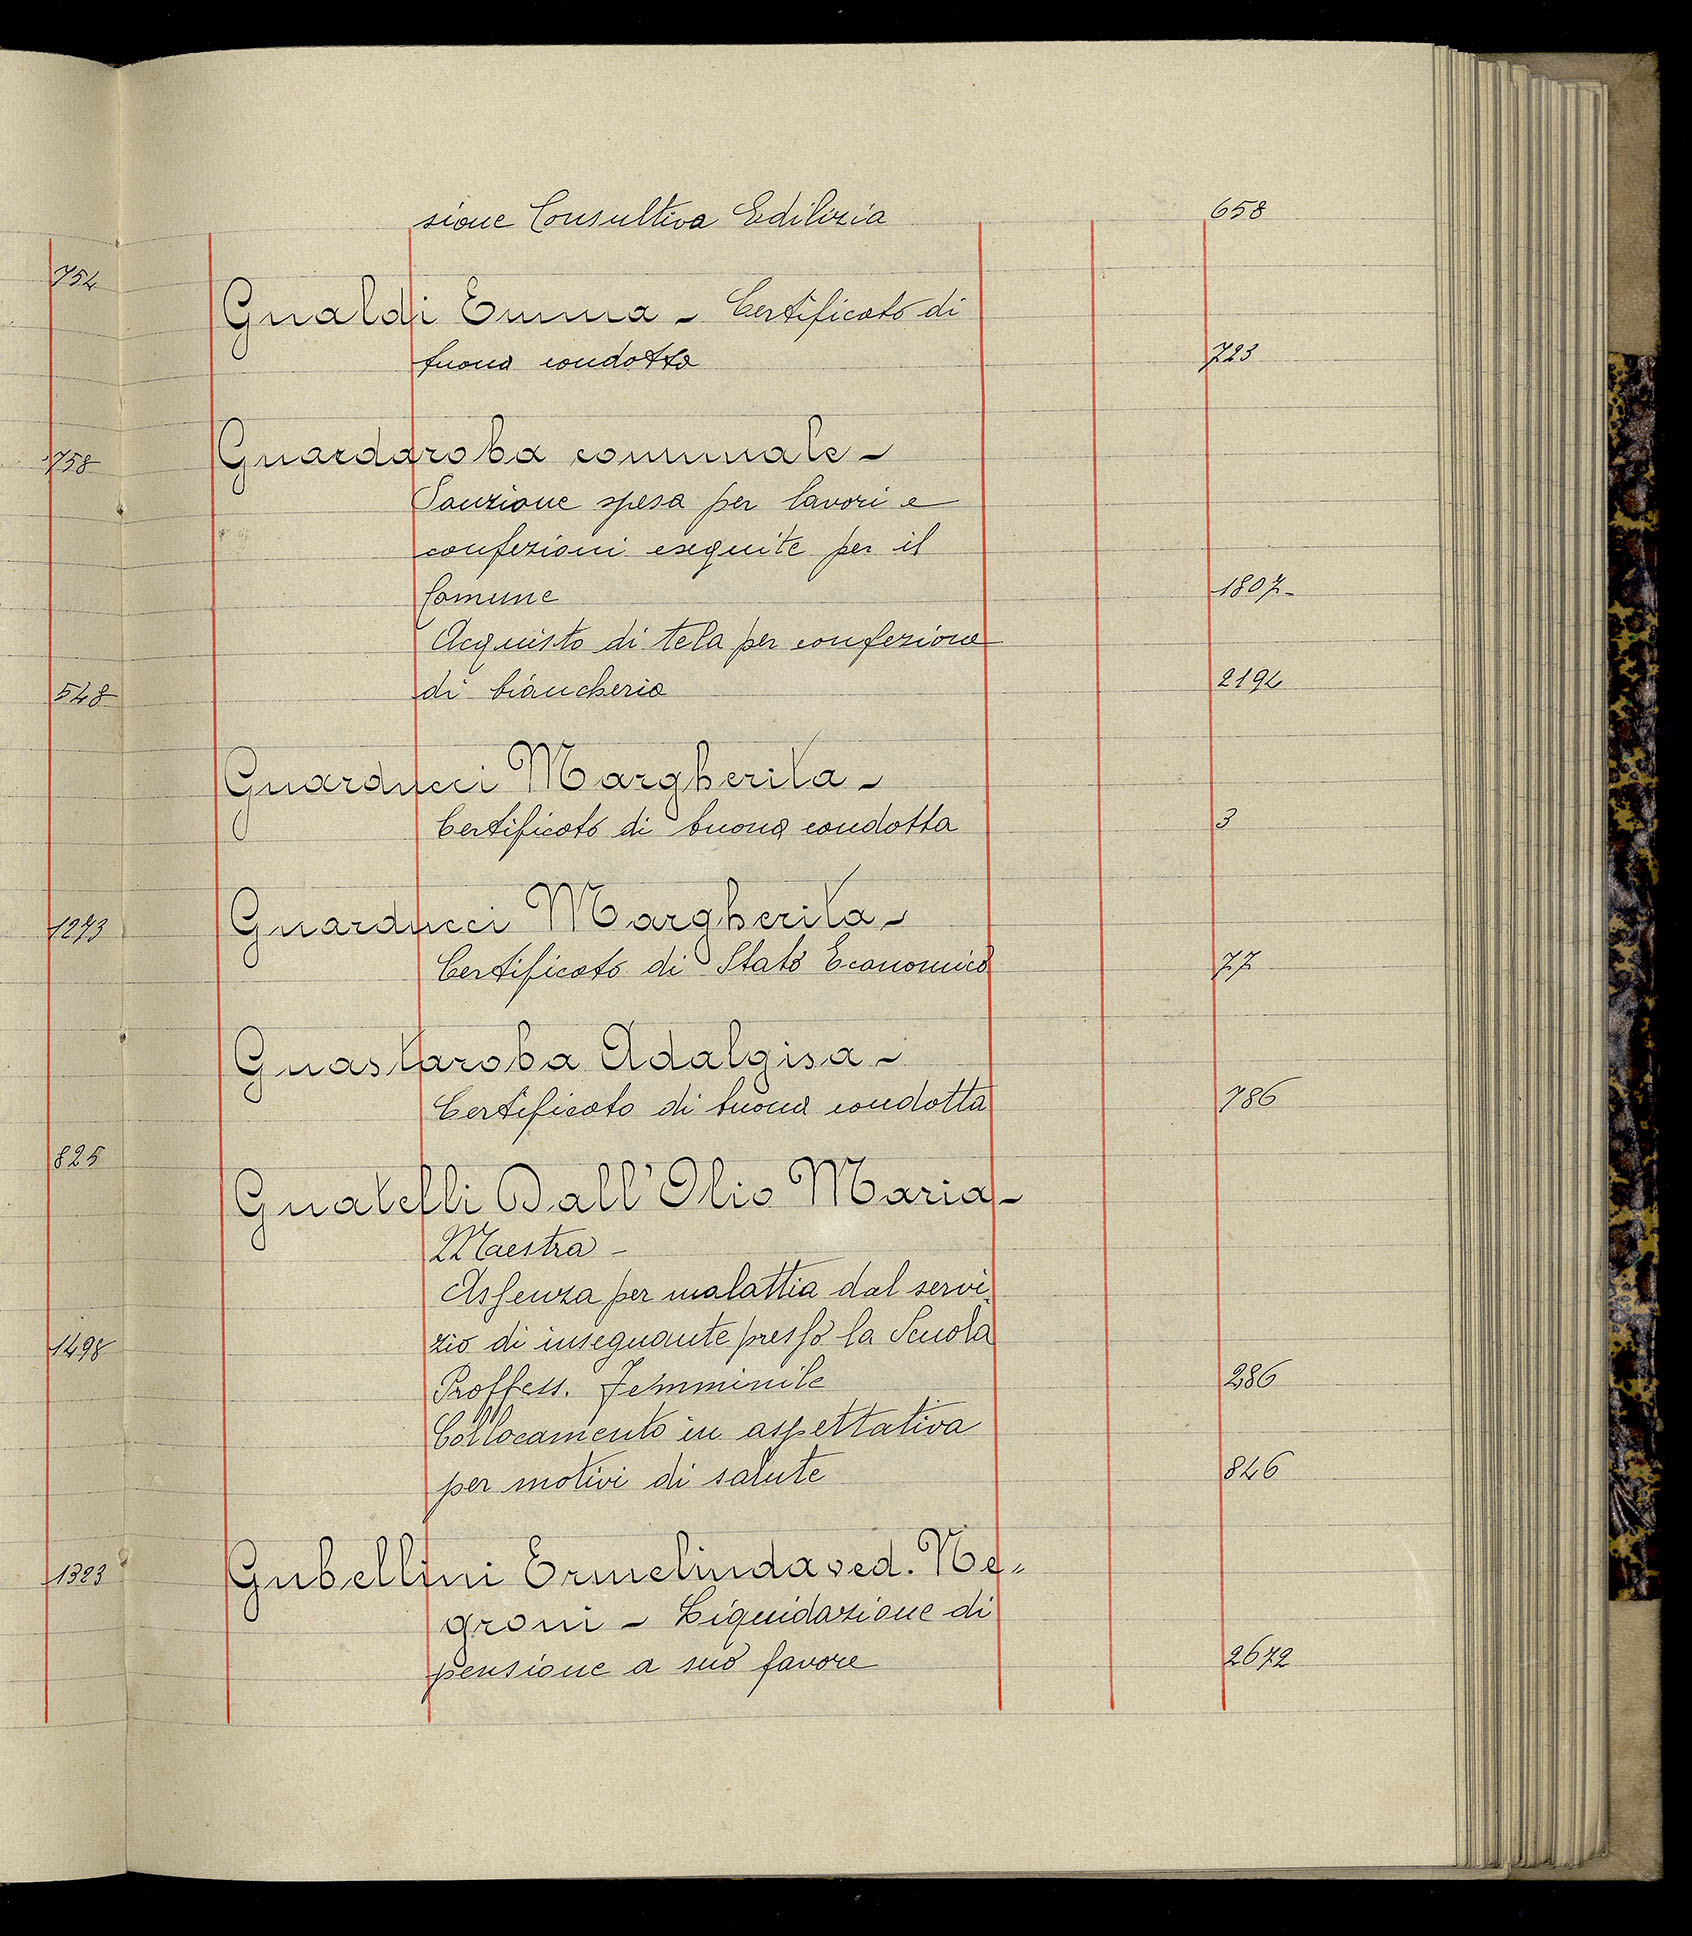 754
758
548
1273
825
1498
1323
sione Consultiva Edilizia 658
Gualdi Emma - Certificato di
buona condotta 723
Guardaroba comunale -
Sanzione spesa per lavori e
confezioni eseguite per il
Comune 1807
Acquisto di tela per confezione
di biancheria 2194
Guarducci Margherita -
Certificato di buona condotta 3
Guarducci Margherita -
Certificato di Stato Economico 77
Guastaroba Adalgisa -
Certificato di buona condotta 786
Guatelli Dall'Olio Maria -
Maestra -
Assenza per malattia dal servi-
zio di insegnante presso la Scuola
Proffess. Femminile 286
Collocamento in aspettativa
per motivi di salute 846
Gubellini Ermelinda ved. Ne-
groni - Liquidazione di
pensione a suo favore 2672